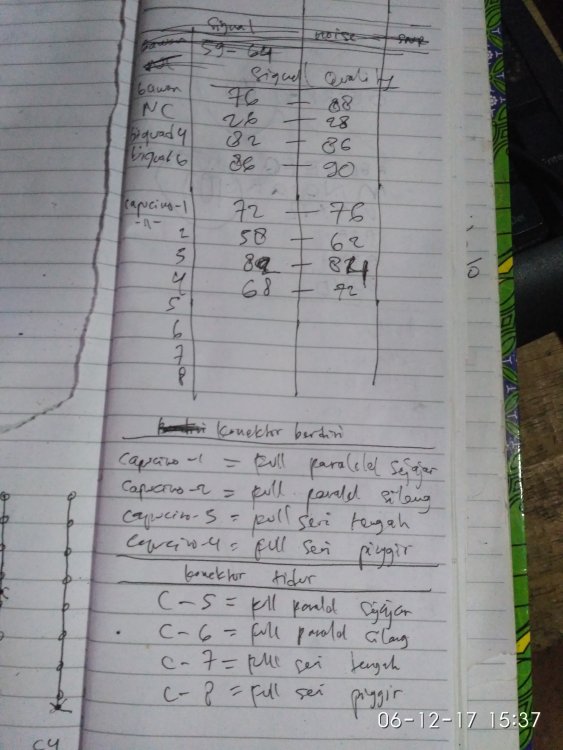 Signal noise
59 - 64
Signal Quality
bawan 76 - 88
NC 26 - 28
biquad 4 82 - 86
biquad 6 86 - 90
capucino-1 72 - 76
-11- 2 58 - 62
3 82 - 84
4 68 - 72
5
6
7
8
konektor berdiri
capucino-1 = full paralel sejajar
capucino-2 = full paralel silang
capucino-3 = full seri tengah
capucino-4 = full seri pinggir
konektor tidur
C-5 = full paralel sejajar
C-6 = full paralel silang
C-7 = full seri tengah
C-8 = full seri pinggir
C4
06-12-17 15:37